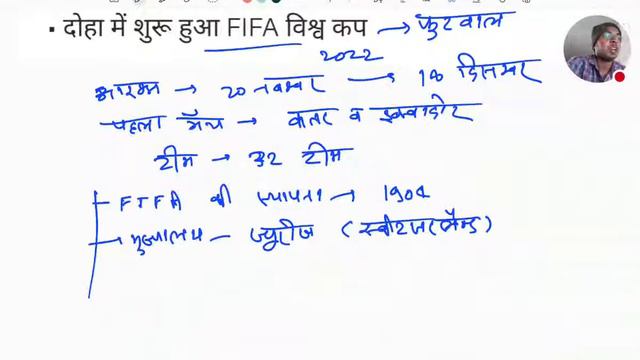 ▪ दोहा में शुरू हुआ FIFA विश्व कप → फुटबाल
2022
आरम्भ → 20 नवम्बर → 18 दिसम्बर
पहला मैच → कतर व इक्वाडोर
टीम → 32 टीम
FIFA की स्थापना → 1904
→ मुख्यालय – ज्यूरीख (स्वीटजरलैण्ड)